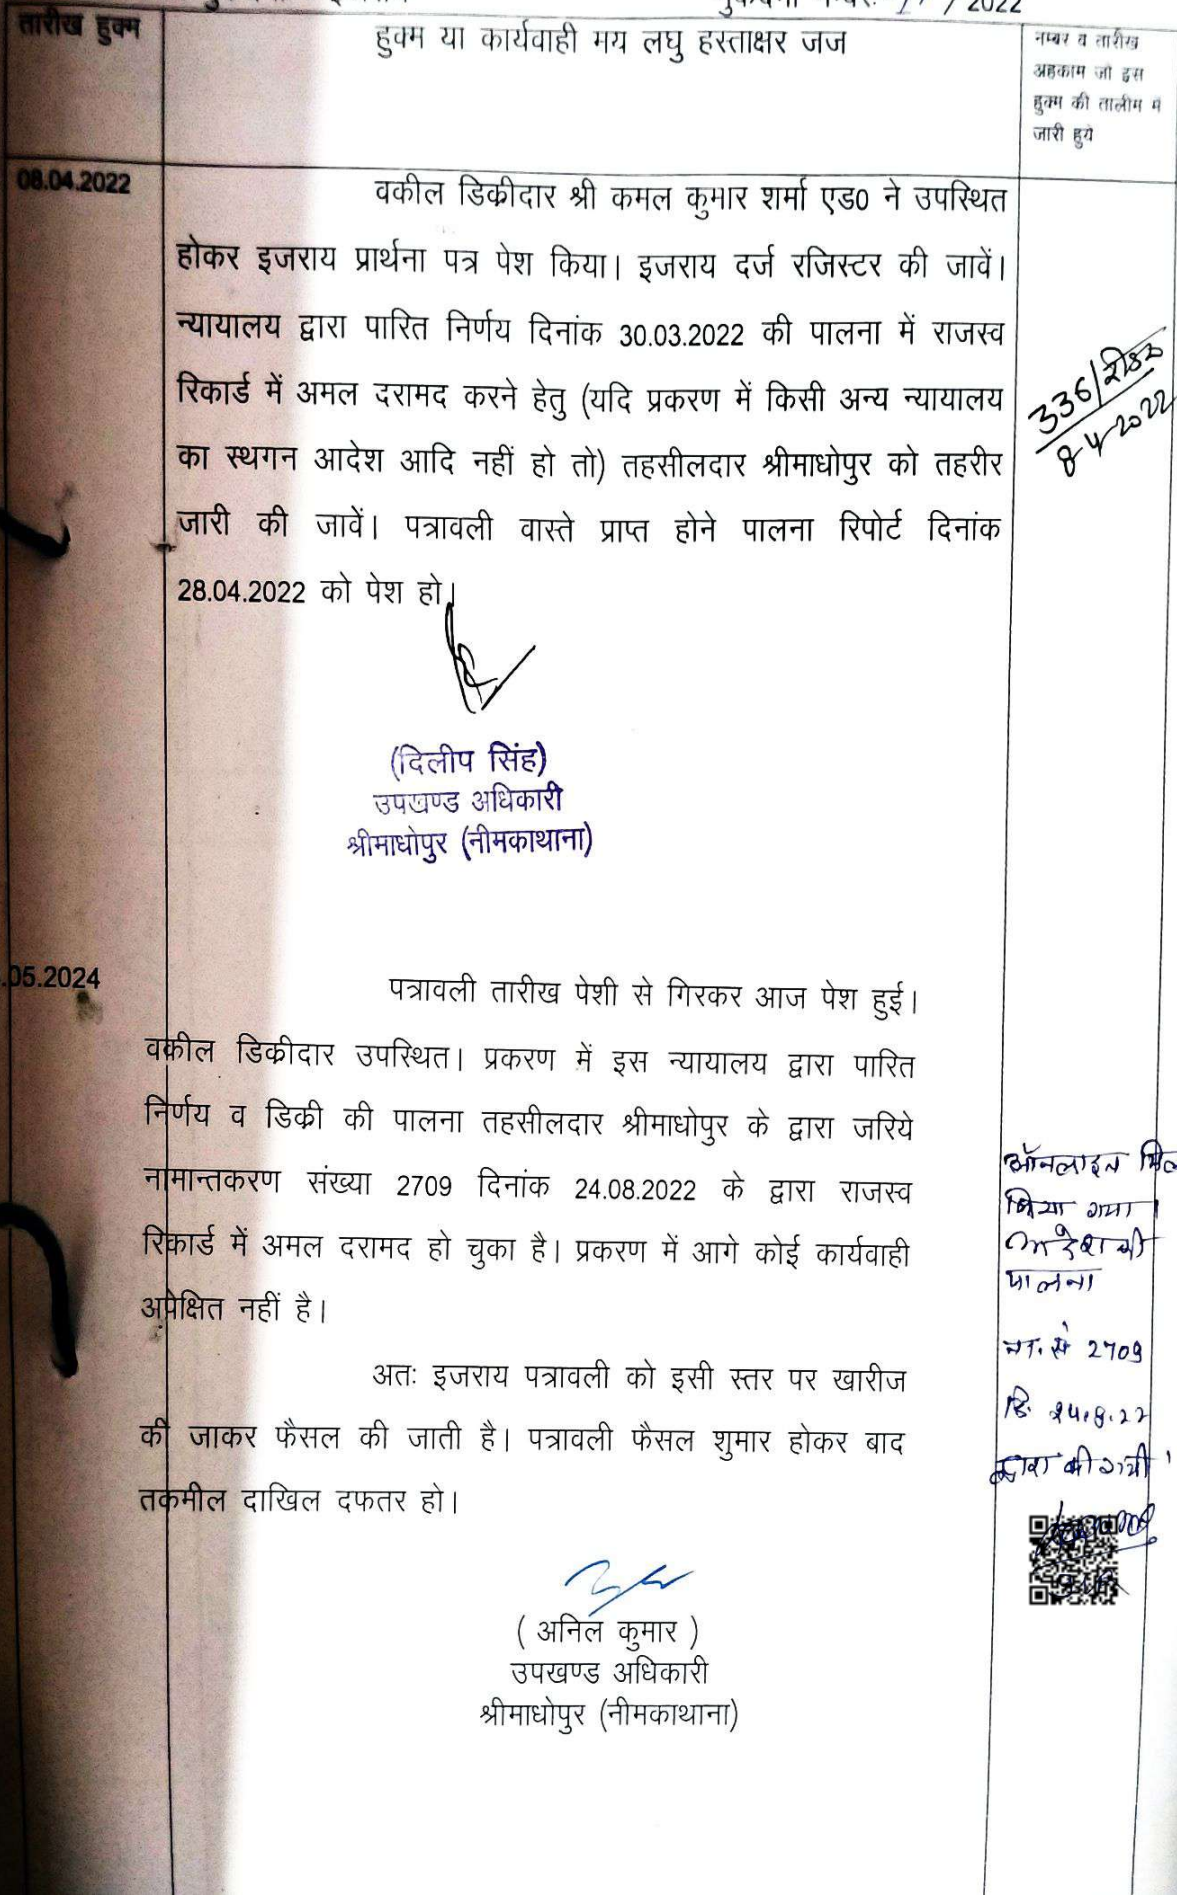 / 2022
तारीख हुक्म
हुक्म या कार्यवाही मय लघु हस्ताक्षर जज
नम्बर व तारीख
अहकाम जो इस
हुक्म की तालीम में
जारी हुये
08.04.2022
वकील डिकीदार श्री कमल कुमार शर्मा एड0 ने उपस्थित
होकर इजराय प्रार्थना पत्र पेश किया। इजराय दर्ज रजिस्टर की जावें।
न्यायालय द्वारा पारित निर्णय दिनांक 30.03.2022 की पालना में राजस्व
रिकार्ड में अमल दरामद करने हेतु (यदि प्रकरण में किसी अन्य न्यायालय
का स्थगन आदेश आदि नहीं हो तो) तहसीलदार श्रीमाधोपुर को तहरीर
जारी की जावें। पत्रावली वास्ते प्राप्त होने पालना रिपोर्ट दिनांक
28.04.2022 को पेश हो।
336/रीडर
8-4-2022
(दिलीप सिंह)
उपखण्ड अधिकारी
श्रीमाधोपुर (नीमकाथाना)
.05.2024
पत्रावली तारीख पेशी से गिरकर आज पेश हुई।
वकील डिकीदार उपस्थित। प्रकरण में इस न्यायालय द्वारा पारित
निर्णय व डिकी की पालना तहसीलदार श्रीमाधोपुर के द्वारा जरिये
नामान्तकरण संख्या 2709 दिनांक 24.08.2022 के द्वारा राजस्व
रिकार्ड में अमल दरामद हो चुका है। प्रकरण में आगे कोई कार्यवाही
अपेक्षित नहीं है।
अतः इजराय पत्रावली को इसी स्तर पर खारीज
की जाकर फैसल की जाती है। पत्रावली फैसल शुमार होकर बाद
तकमील दाखिल दफतर हो।
ऑनलाइन
किया गया।
आदेश की
पालना
ना. सं 2709
दि. 24.8.22
द्वारा की गयी।
( अनिल कुमार )
उपखण्ड अधिकारी
श्रीमाधोपुर (नीमकाथाना)